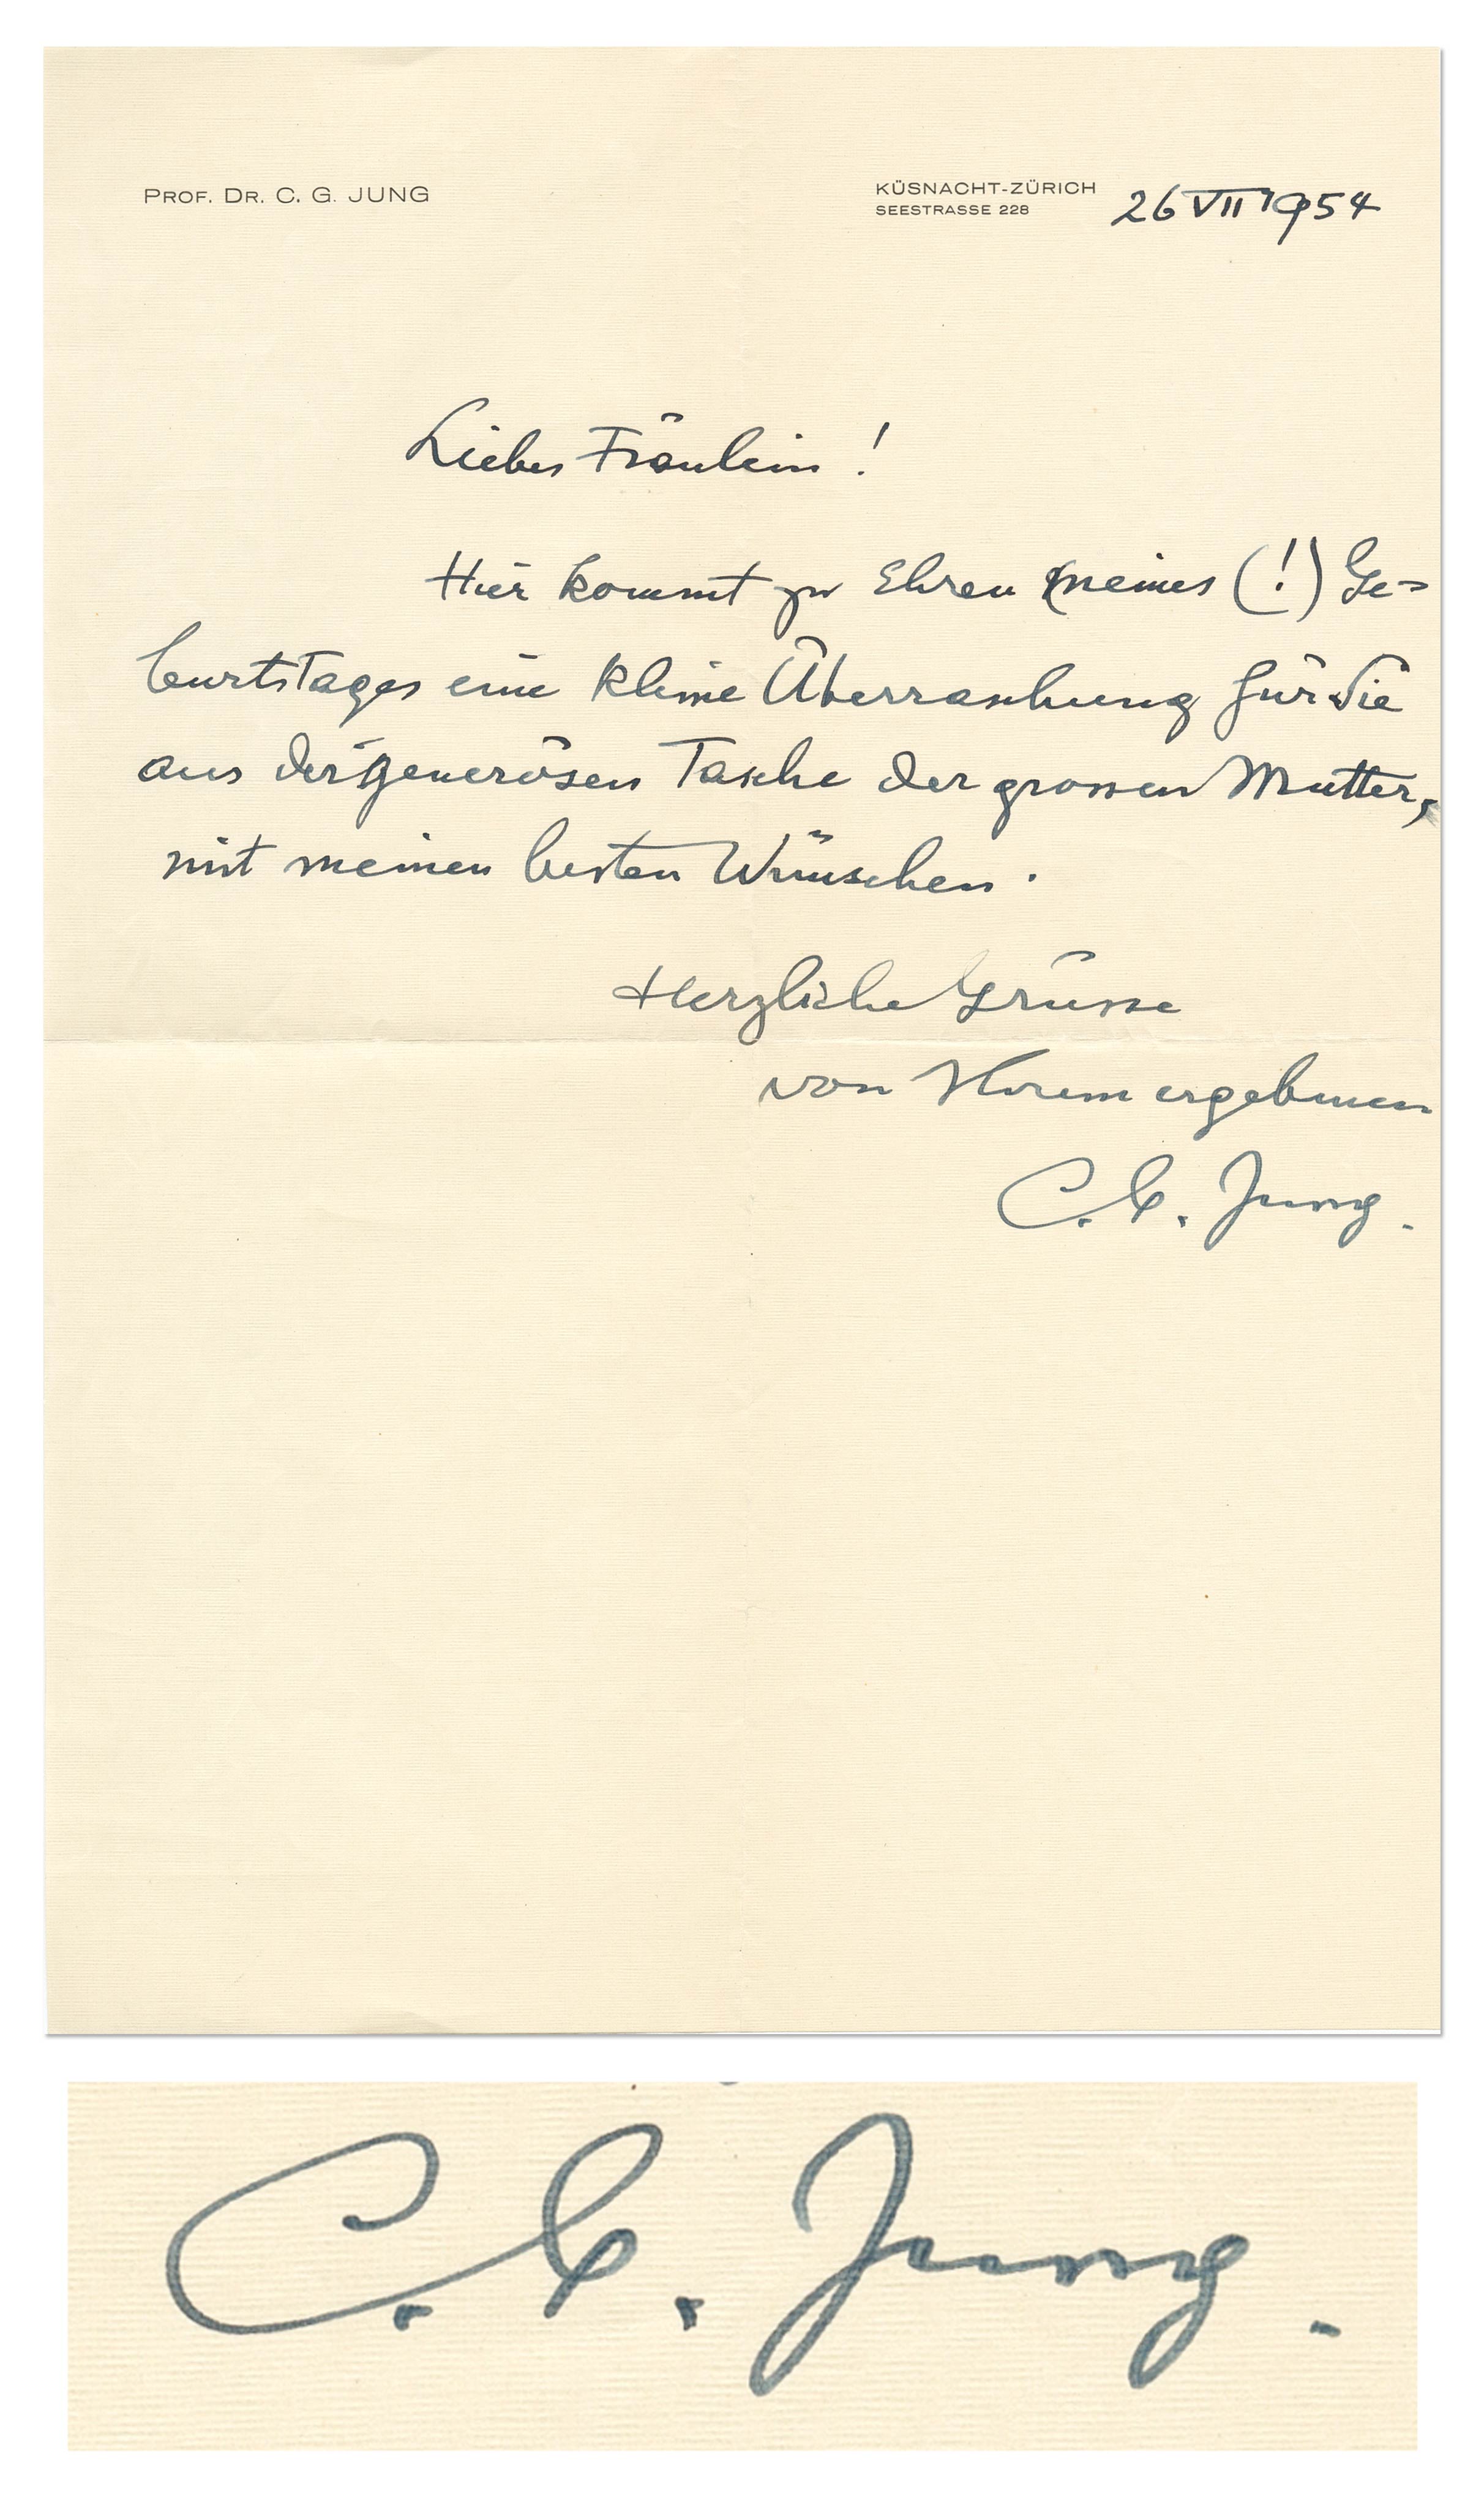 PROF. DR. C. G. JUNG
KÜSNACHT-ZÜRICH
SEESTRASSE 228
26 VII 1954
Liebes Fräulein !
Hier kommt zu Ehren meines (!) Ge-
burtstages eine kleine Überraschung für Sie
aus der generösen Tasche der grossen Mutter,
mit meinen besten Wünschen.
Herzliche Grüsse
von Ihrem ergebenen
C. G. Jung.
C. G. Jung.